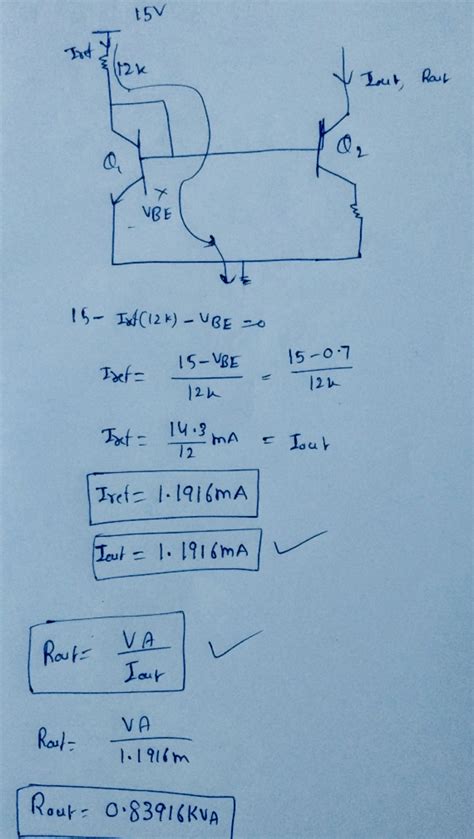 15V
Iref
12k
Iout, Rout
Q1
Q2
VBE
15 - Iref(12k) - VBE = 0
Iref = (15-VBE)/12k = (15-0.7)/12k
Iref = 14.3/12 mA = Iout
Iref = 1.1916mA
Iout = 1.1916mA ✓
Rout = VA/Iout ✓
Rout = VA/1.1916m
Rout = 0.83916KVA